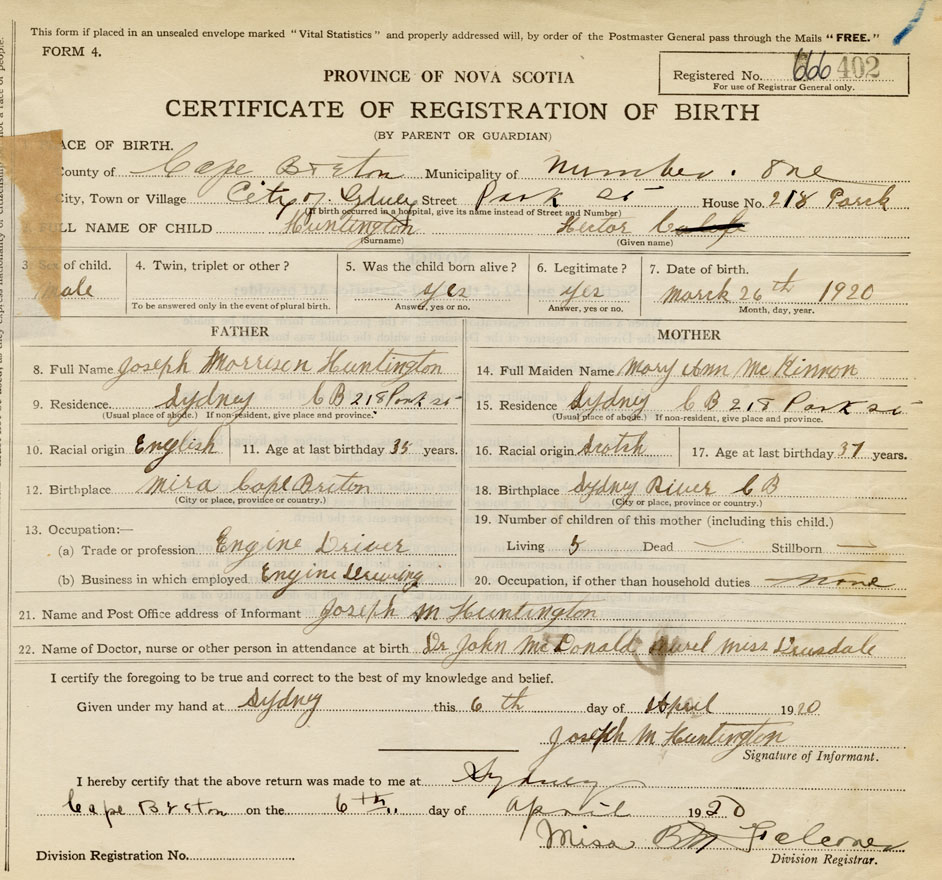 This form if placed in an unsealed envelope marked "Vital Statistics" and properly addressed will, by order of the Postmaster General pass through the Mails "FREE."
FORM 4.
PROVINCE OF NOVA SCOTIA
Registered No. 666 402
For use of Registrar General only.
CERTIFICATE OF REGISTRATION OF BIRTH
(BY PARENT OR GUARDIAN)
ACE OF BIRTH.
County of Cape Breton Municipality of Number. One
City, Town or Village City of Sydney Street Park St House No. 218 Parck
(If birth occurred in a hospital, give its name instead of Street and Number)
FULL NAME OF CHILD Huntington Hector
(Surname) (Given name)
3. Sex of child. 4. Twin, triplet or other? 5. Was the child born alive? 6. Legitimate? 7. Date of birth.
male yes yes March 26th 1920
To be answered only in the event of plural birth. Answer, yes or no. Answer, yes or no. Month, day, year.
FATHER MOTHER
8. Full Name Joseph Morrison Huntington 14. Full Maiden Name Mary Ann McKinnon
9. Residence. Sydney C B 218 Park St 15. Residence Sydney C B 218 Park St
(Usual place of abode.) If non-resident, give place and province. (Usual place of abode.) If non-resident, give place and province.
10. Racial origin English 11. Age at last birthday 35 years. 16. Racial origin Scotch 17. Age at last birthday 37 years.
12. Birthplace Mira Cape Breton 18. Birthplace Sydney River C B
(City or place, province or country.) (City or place, province or country.)
13. Occupation:— 19. Number of children of this mother (including this child.)
(a) Trade or profession. Engine Driver Living 5 Dead — Stillborn —
(b) Business in which employed Engine Driving 20. Occupation, if other than household duties none
21. Name and Post Office address of Informant Joseph M Huntington
22. Name of Doctor, nurse or other person in attendance at birth Dr John McDonald Miss
I certify the foregoing to be true and correct to the best of my knowledge and belief.
Given under my hand at Sydney this 6th day of April 1920
Joseph M Huntington
Signature of Informant.
I hereby certify that the above return was made to me at Sydney
Cape Breton on the 6th day of April 1920
Miss Falconer
Division Registration No. Division Registrar.